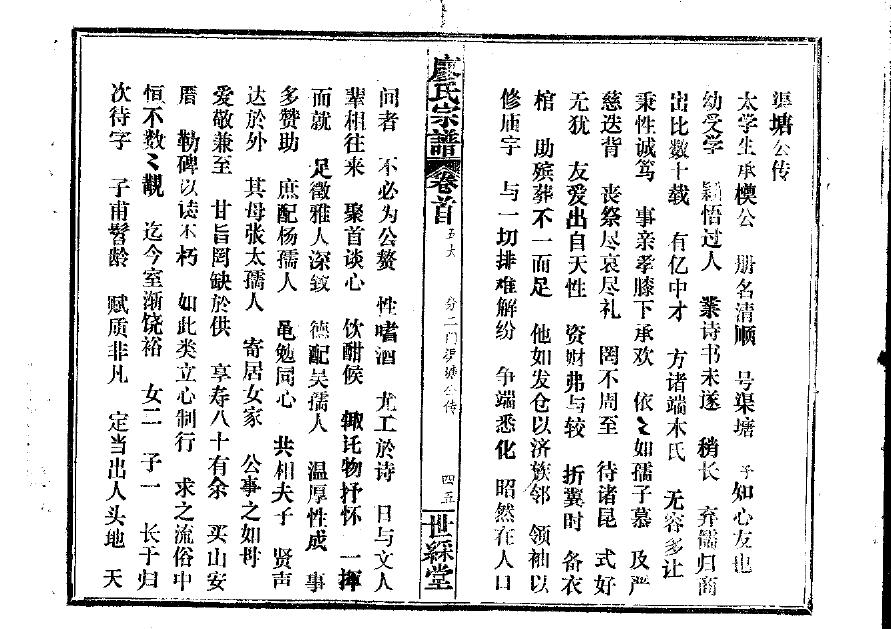 渠塘公传
太学生承模公 册名清顺 号渠塘 予知心友也
幼受学 颖悟过人 业诗书未遂 稍长 弃儒归商
出比数十载 有亿中才 方诸端木氏 无容多让
秉性诚笃 事亲孝膝下承欢 依〻如孺子慕 及严
慈迭背 丧祭尽哀尽礼 罔不周至 待诸昆 式好
无犹 友爱出自天性 资财弗与较 折冀时 备衣
棺 助殡葬不一而足 他如发仓以济族邻 领袖以
修庙宇 与一切排难解纷 争端悉化 昭然在人口
廖氏宗譜 卷首
分二门渠塘公传
四五
世綵堂
问者 不必为公赘 性嗜酒 尤工於诗 日与文人
辈相往来 聚首谈心 饮酣候 辄讬物抒怀 一挥
而就 足徵雅人深致 德配吴孺人 温厚性成 事
多赞助 庶配杨孺人 黾勉同心 共相夫子 贤声
达於外 其母张太孺人 寄居女家 公事之如母
爱敬兼至 甘旨罔缺於供 享寿八十有余 买山安
厝 勒碑以读不朽 如此类立心制行 求之流俗中
恒不数〻觏 迄今室渐饶裕 女二 子一 长于归
次待字 子甫髫龄 赋质非凡 定当出人头地 天